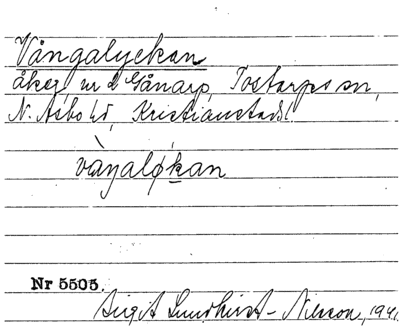 Vångalyckan
åker, nr 2 Gånarp, Tostarps sn,
N. Åsbo hd, Kristianstads l.
vàŋalø̨kan
Nr 5505.
Birgit Lundkvist-Nilsson, 1941